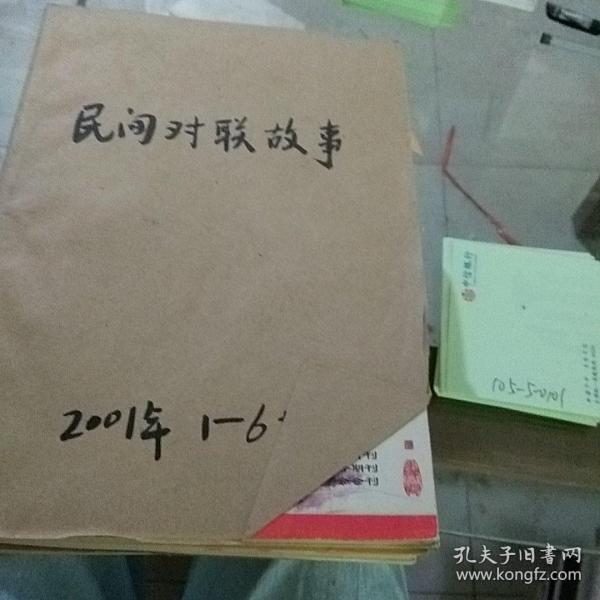 民间对联故事
2001年 1-6
期刊
会刊
中信银行
105-5-0101
孔夫子旧书网
www.kongfz.com